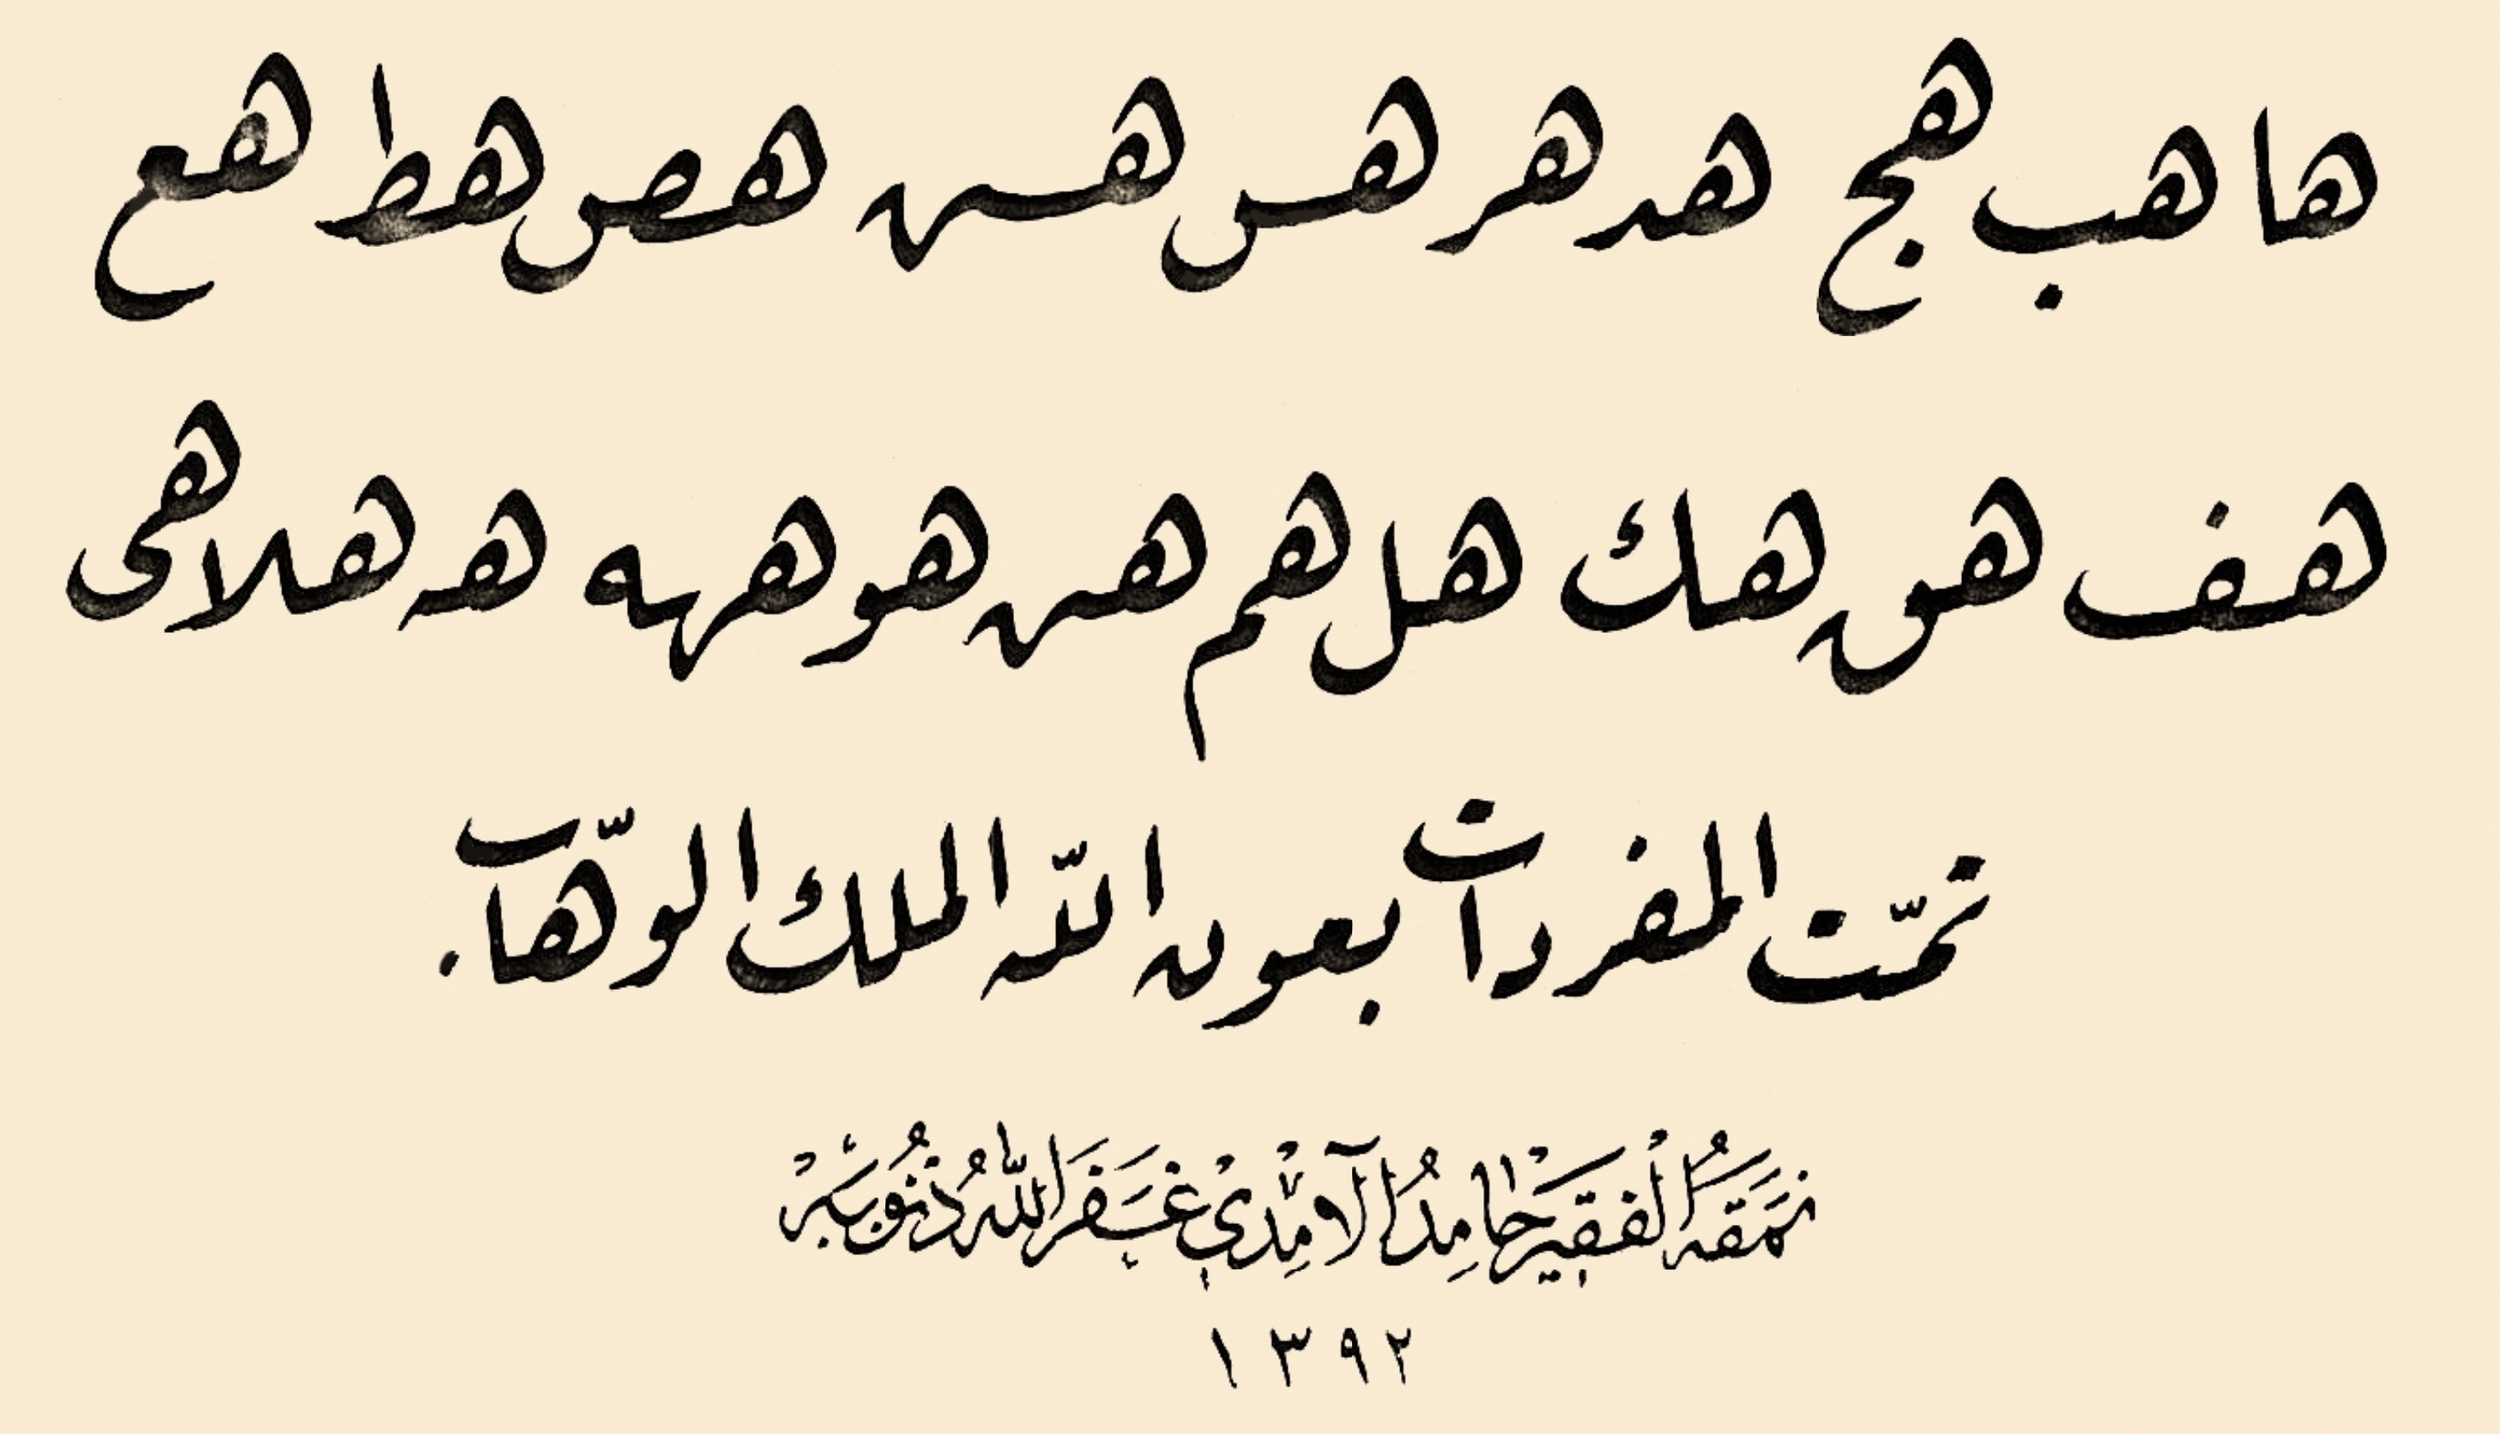 ها هب هج هد هر هس هس هص هط هع
هف هق هك هل هم هن هو هه هه هلا هى
تمّت المفردات بعون اللّه الملك الوهّاب.
نَمَقَهُ الْفَقِيرْ حَامِدُ الْآمِدِيْ غَفَرَ اللّٰهُ ذُنُوبَهْ
١٣٩٢